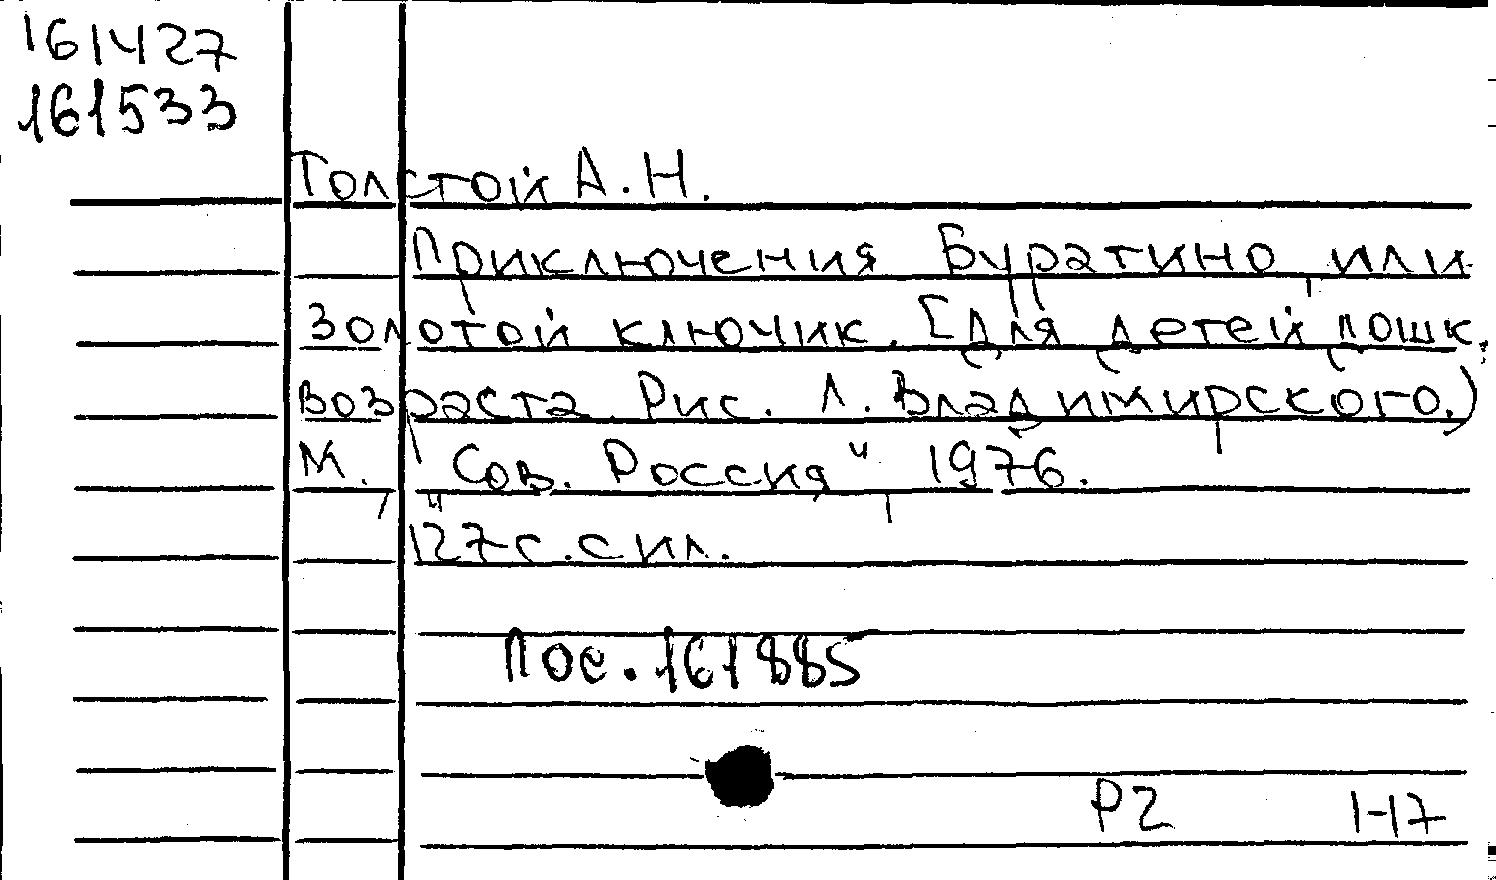 161427
161533
Толстой А. Н.
Приключения Буратино, или
золотой ключик. [Для детей дошк.
возраста. Рис. Л. Владимирского.)
М., "Сов. Россия", 1976.
127 с. с ил.
Пос. 161885
Р2 1-17